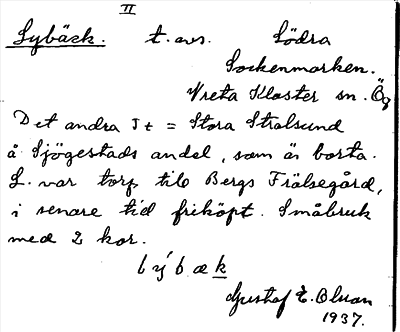 II
Lybäck. t. avs. Södra
Sockenmarken.
Vreta Kloster sn. Ög
Det andra T t = Stora Stralsund
å Sjögestads andel, som är borta.
L. var torp till Bergs Frälsegård,
i senare tid friköpt. Småbruk
med 2 kor.
Gustaf E. Olsson
1937.